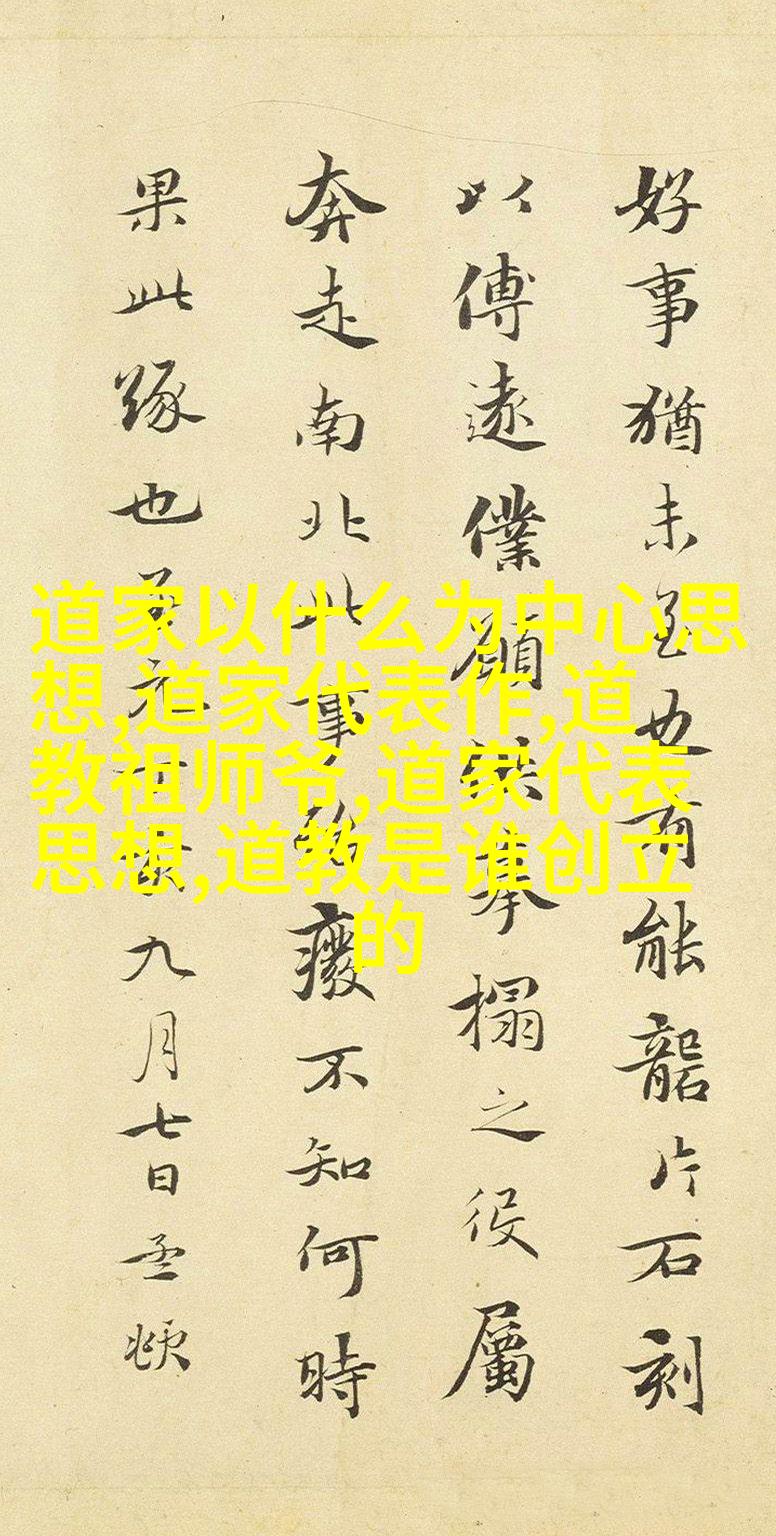 好事猶未至也有能礱片石刻
以傅遠僕願
奉搨之役屬
奔走南北此事
癈不知何時
果此緣也
九月七日孟頫
道家以什么为中心思
想,道家代表作,道
教祖师爷,道家代表
思想,道教是谁创立
的